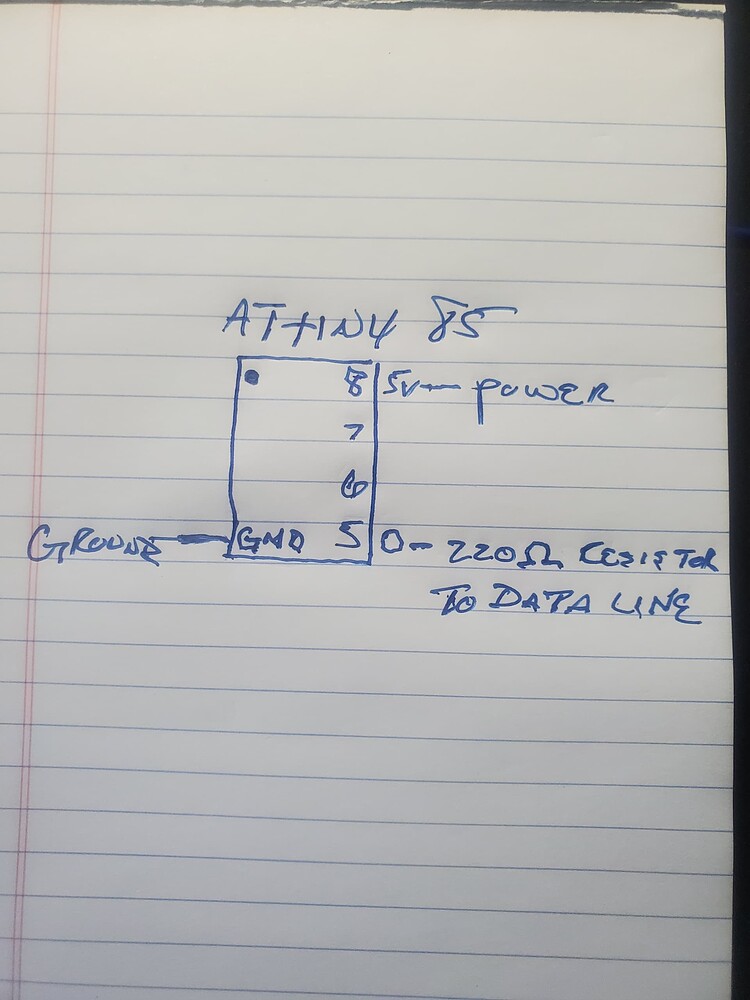 ATTINY 85
8 5V — POWER
7
6
GROUND — GND 5 0 - 220Ω RESISTOR
TO DATA LINE